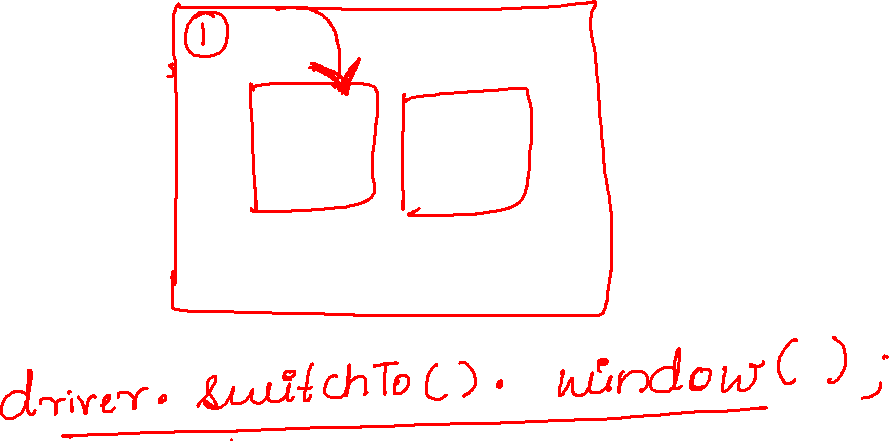 1
driver. switchTo(). window( );